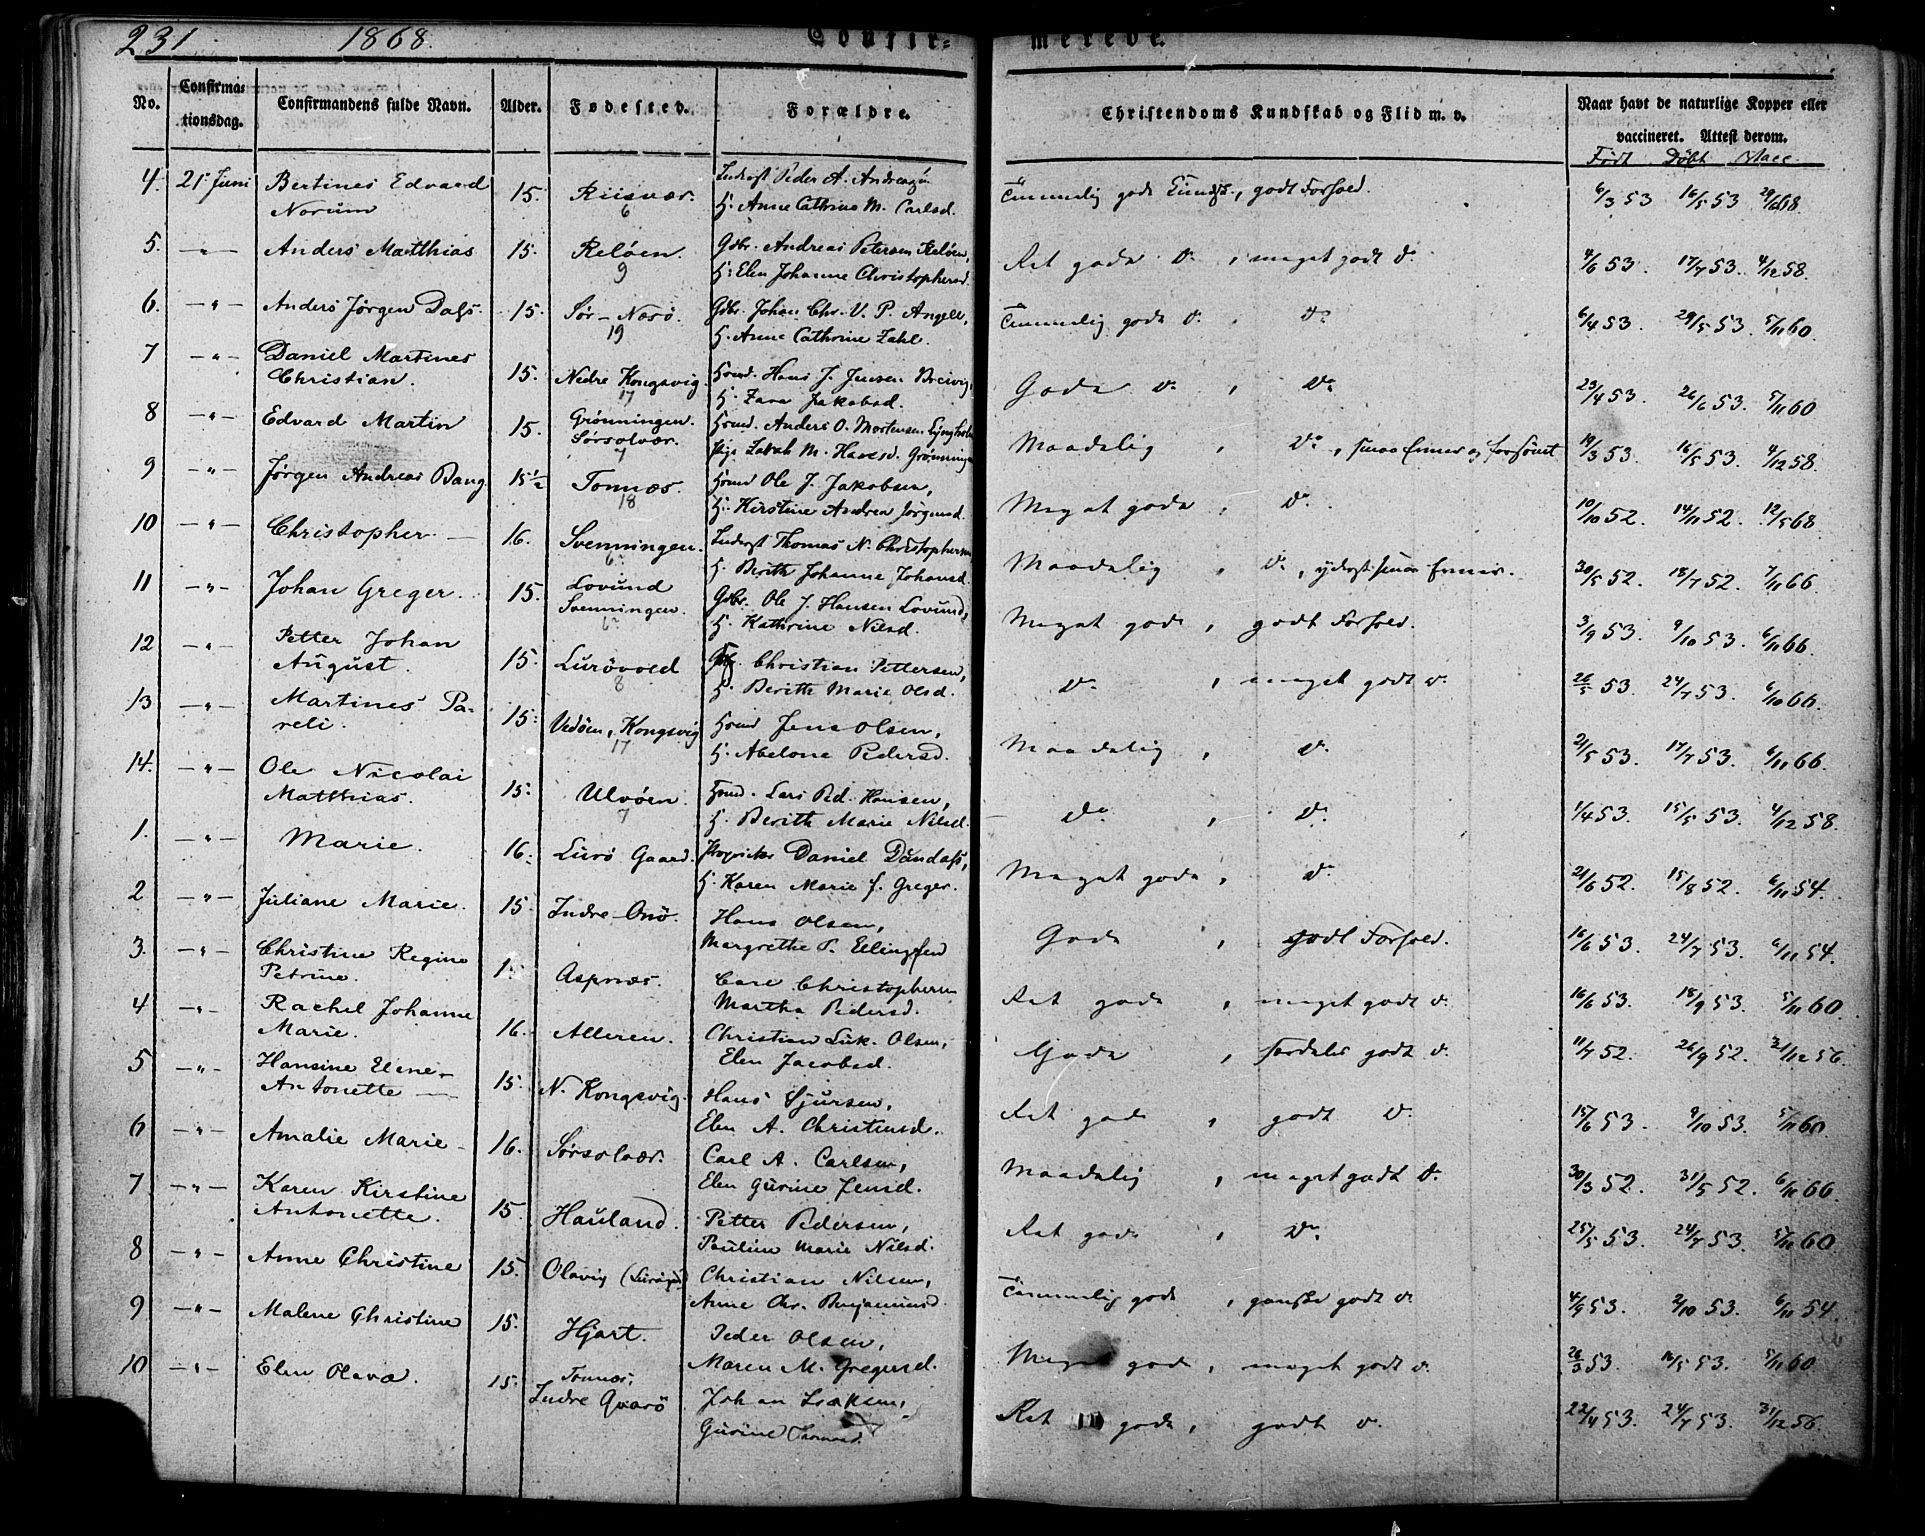 231 1868. Confir= merede.
No. Confirma= tionsdag. Confirmandens fulde Navn. Alder. Fødested. Forældre. Christendoms Kundskab og Flid m. v. Naar havt de naturlige Kopper eller vaccineret. Attest derom.
Født Døbt Vacc.
4. 21 Juni Bertines Edvard 15. Riisvær. Peder A. temmelig gode Kundsk., godt Forhold. 6/3 53 16/5 53 29/6 68.
Norum 6 H. Anne Cathrine M. Carlsd.
5. -"- Anders Matthias 15. Reløen. Gdbr. Andreas Petersen Reløen, Ret gode D. , meget godt D. 4/6 53. 17/7 53. 4/12 58.
9 H. Elen Johanne Christophersd.
6. -"- Anders Jørgen Dass. 15. Sør-Nesø. Gdbr. Johan Chr. V. P. Angell, Temmelig gode D. , D. 6/4 53. 29/5 53. 5/11 60.
19 H. Anne Cathrine Zahl.
7 -"- Daniel Martines 15. Nedre Kongsvig. Hmd. Hans J. Jensen Breivig, Gode D. , D. 23/4 53. 26/6 53. 5/11 60
Christian. 17 H. Zara Jakobsd.
8 -"- Edvard Martin 15. Grønningen. Hmd. Anders O. Mortensen Maadelig , D. , smaa Evner og forsømt 19/3 53. 16/5 53. 4/12 58.
Sørsolvær. 7 Pige M. Hansd. Grønningen
9 -"- Jørgen Andreas Bang 15½ Tonnes. Hmd Ole J. Jakobsen, Meget gode , D. 10/10 52. 14/11 52. 12/5 68.
18 H. Kirstine Andrea Jørgensd.
10 -"- Christopher. 16. Svenningen. Thomas N. Christophersen Maadelig , D. , yderst smaa Evner. 30/5 52. 18/7 52. 7/11 66.
6 H. Berith Johanne Johansd.
11 -"- Johan Greger. 15. Lovund Gdbr. Ole J. Hansen Lovund, Meget gode , godt Forhold. 3/9 53. 9/10 53. 6/11 66.
Svenningen. 6 H. Kathrine Nilsd.
12 -"- Petter Johan 15. Lurøvold Christian Pettersen, D. , meget godt D. 26/5 53. 24/7 53. 6/10 66.
August. 8 H. Berith Marie Olsd.
13 -"- Martines Pa- 15. Vedøen, Kongsvig Hmd Jens Olsen, Maadelig , D. 21/5 53. 17/7 53. 6/11 66.
reli. 17 H. Abelone Pedersd.
14. -"- Ole Nicolai 15. Ulvøen. Hmd. Lars Ped. Hansen, D. , D. 1/4 53. 15/5 53. 4/12 58.
Matthias. 7 H. Berith Marie Nilsd.
1. -"- Marie. 16. Lurø Gaard. Proprietær Daniel Dundass, Meget gode , D. 21/6 52. 15/8 52. 6/11 54.
H. Karen Marie f. Greger.
2 -"- Juliane Marie. 15. Indre-Onø. Hans Olsen, Gode , godt Forhold. 16/6 53. 24/7 53. 6/11 54.
Margrethe P. Ellingsen
3. -"- Christine Regine 15 Aspnæs. Carl Christophersen Ret gode , meget godt D. 16/6 53. 18/9 53. 5/11 60.
Petrine. Martha Pedersd.
4 -"- Rachel Johanne 16. Alderen. Christian Luk. Olsen, Gode , særdeles godt D. 11/7 52. 26/9 52. 31/12 56.
Marie. Elen Jacobsd.
5 -"- Hansine Elene 15. N. Kongsvig. Hans Sjursen, Ret gode , godt D. 15/6 53. 9/10 53. 5/11 60.
Antonette Elen A. Christensd.
6 -"- Amalie Marie 16. Sørsolvær. Carl A. Carlsen, Maadelig , meget godt D. 30/3 52. 31/5 52. 6/11 66.
Elen Gurine Jensd.
7 -"- Karen Kirstine 15. Hauland. Petter Pedersen, Ret gode , D. 25/5 53. 24/7 53. 5/11 60.
Antonette. Pauline Marie Nilsd.
8 -"- Anne Christine 15. Olavig Christian Nilsen, Temmelig gode , ganske godt D. 4/9 53. 2/10 53. 6/11 54.
Anne Chr. Benjaminsd
9 -"- Malene Christine 15. Hjart. Peder Olsen, Meget gode , meget godt D. 26/3 53. 16/5 53. 5/11 60.
Maren M. Gregersd.
10 -"- Elen Olava. 15. Tonnes, Johan Isaksen, Ret gode , godt D. 22/4 53. 24/7 53. 31/12 56.
Indre Qvarø Gurine Thomasd.